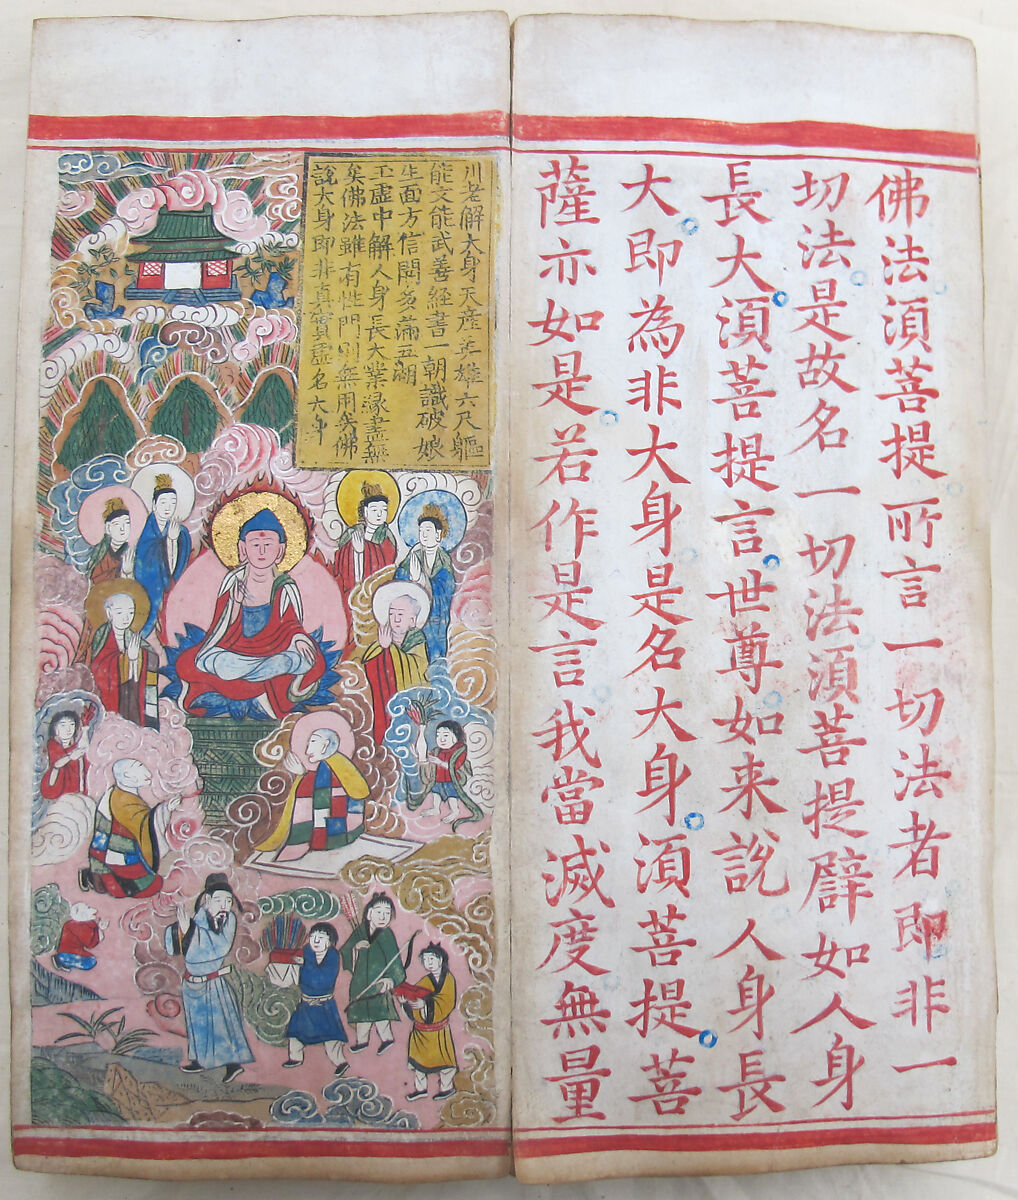 佛法湏菩提所言一切法者即非一
切法是故名一切法湏菩提譬如人身
長大湏菩提言世尊如来說人身長
大即為非大身是名大身湏菩提菩
薩亦如是若作是言我當滅度無量
川老解大身天産英雄六尺軀
能文能武善經書一朝識破娘
生面方信閑多滿五湖
王虛中解人身長大業縁盡無
矣佛法雖有性門別無用矣佛
說大身即非真實虛名